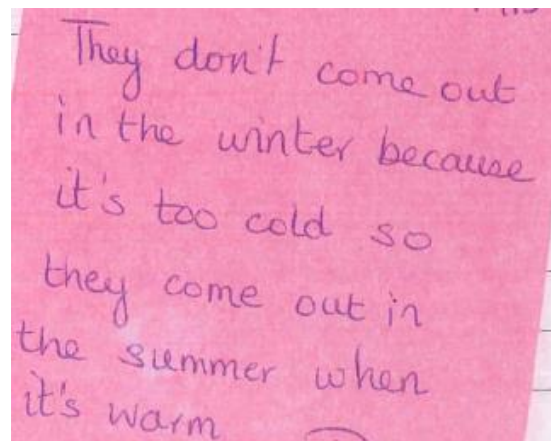 They don't come out
in the winter because
it's too cold so
they come out in
the summer when
it's warm